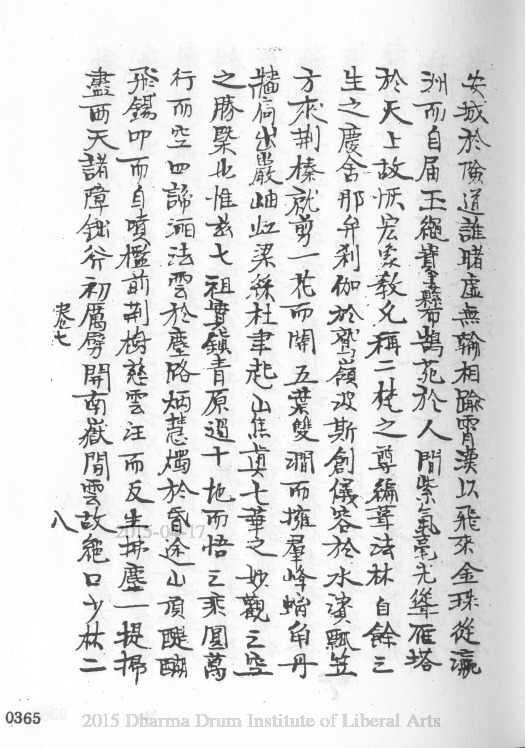 安城於險道誰睹虛無輪相踰霄漢以飛來金珠從瀛
洲而自届玉礎騫縣鵠苑於人間紫氣毫光聳雁塔
於天上故恢宏象教允稱二梵之尊編葺法林自餘三
生之慶舍那弁刹伽於鷲嶺波斯創儀容於水濱瓢笠
方來荆榛就剪一花而開五葉雙澗而擁羣峰蝸角丹
牆高出巖岫虹梁絲杜聿起山焦真七華之妙觀三空
之勝槩也惟茲七祖實鎮青原過十地而悟三乘圓萬
行而空四諦洒法雲於塵路炳慧燭於昏途山頂醍醐
飛錫叩而自噴檻前荆梅慈雲注而反生拂塵一提掃
盡西天諸障鈯斧初厲劈開南嶽閒雲故能口少林二
卷七
八
0365
2015 Dharma Drum Institute of Liberal Arts